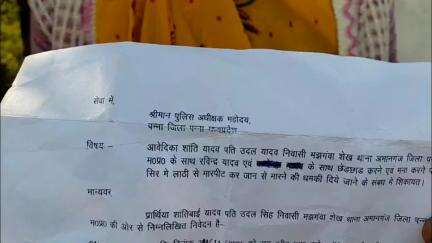 सेवा में,
श्रीमान पुलिस अधीक्षक महोदय,
पन्ना जिला पन्ना मध्यप्रदेश
विषय – आवेदिका शांति यादव पति उदल यादव निवासी मझगवां शेख थाना अमानगंज जिला
म०प्र० के साथ रविन्द यादव एवं के साथ छेड़छाड़ करने एवं मना करने
सिर में लाठी से मारपीट कर जान से मारने की धमकी दिये जाने के संबध में शिकायत।
मान्यवर
प्रार्थिया शांतिबाई यादव पति उदल सिंह निवासी मझगवां शेख थाना अमानगंज जिला
म०प्र० की ओर से निम्नलिखित निवेदन है–